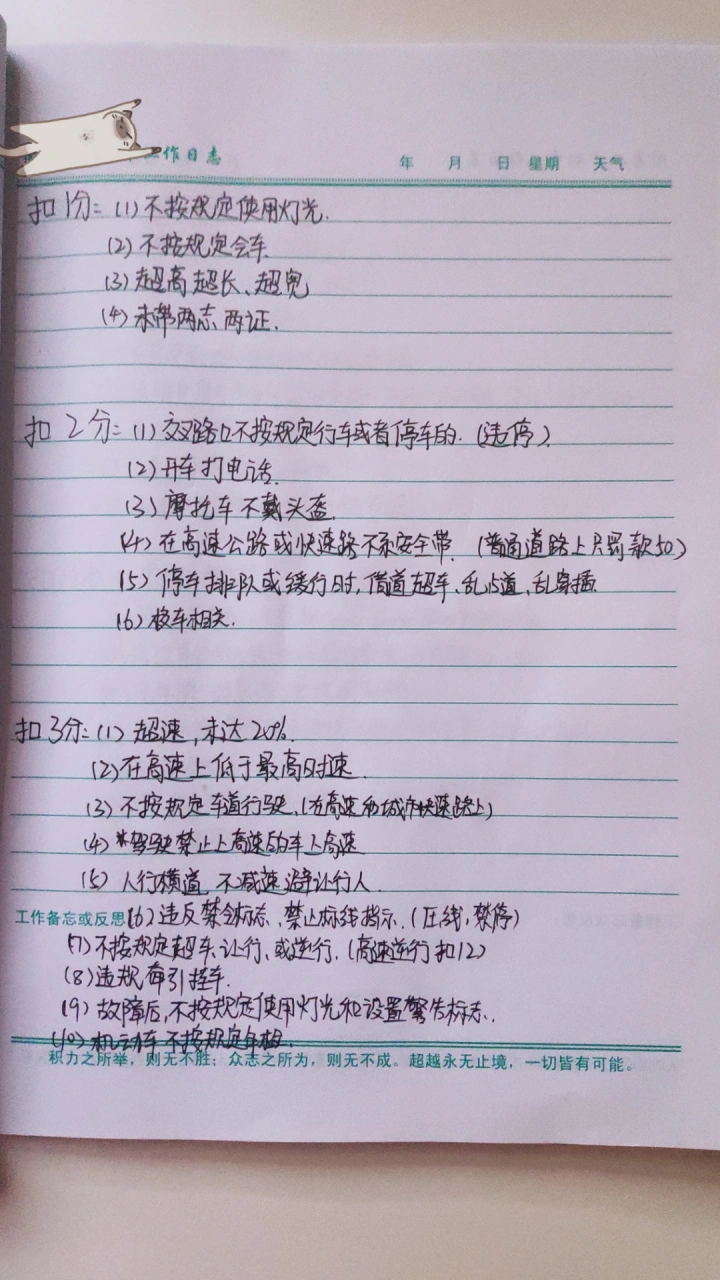 作日志 年 月 日 星期 天气
扣1分:(1)不按规定使用灯光.
(2)不按规定会车.
(3)超高超长、超宽
(4)未带两志两证.
扣2分:(1)交叉路口不按规定行车或者停车的.(违停).
(2)开车打电话.
(3)摩托车不戴头盔.
(4)在高速公路或快速路不系安全带.(普通道路上只罚款50)
(5)停车排队或缓行时,借道超车、乱占道、乱穿插.
(6)校车相关.
扣3分:(1)超速,未达20%.
(2)在高速上低于最高时速.
(3)不按规定车道行驶.(在高速和城市快速路上)
(4)*驾驶禁止上高速的车上高速
(5)人行横道,不减速避让行人.
工作备忘或反思(6)违反禁令标志、禁止标线指示.(压线,禁停)
(7)不按规定超车、让行、或逆行.(高速逆行扣12)
(8)违规牵引挂车.
(9)故障后,不按规定使用灯光和设置警告标志.
(10)机动车不按规定年检.
积力之所举,则无不胜;众志之所为,则无不成。超越永无止境,一切皆有可能。